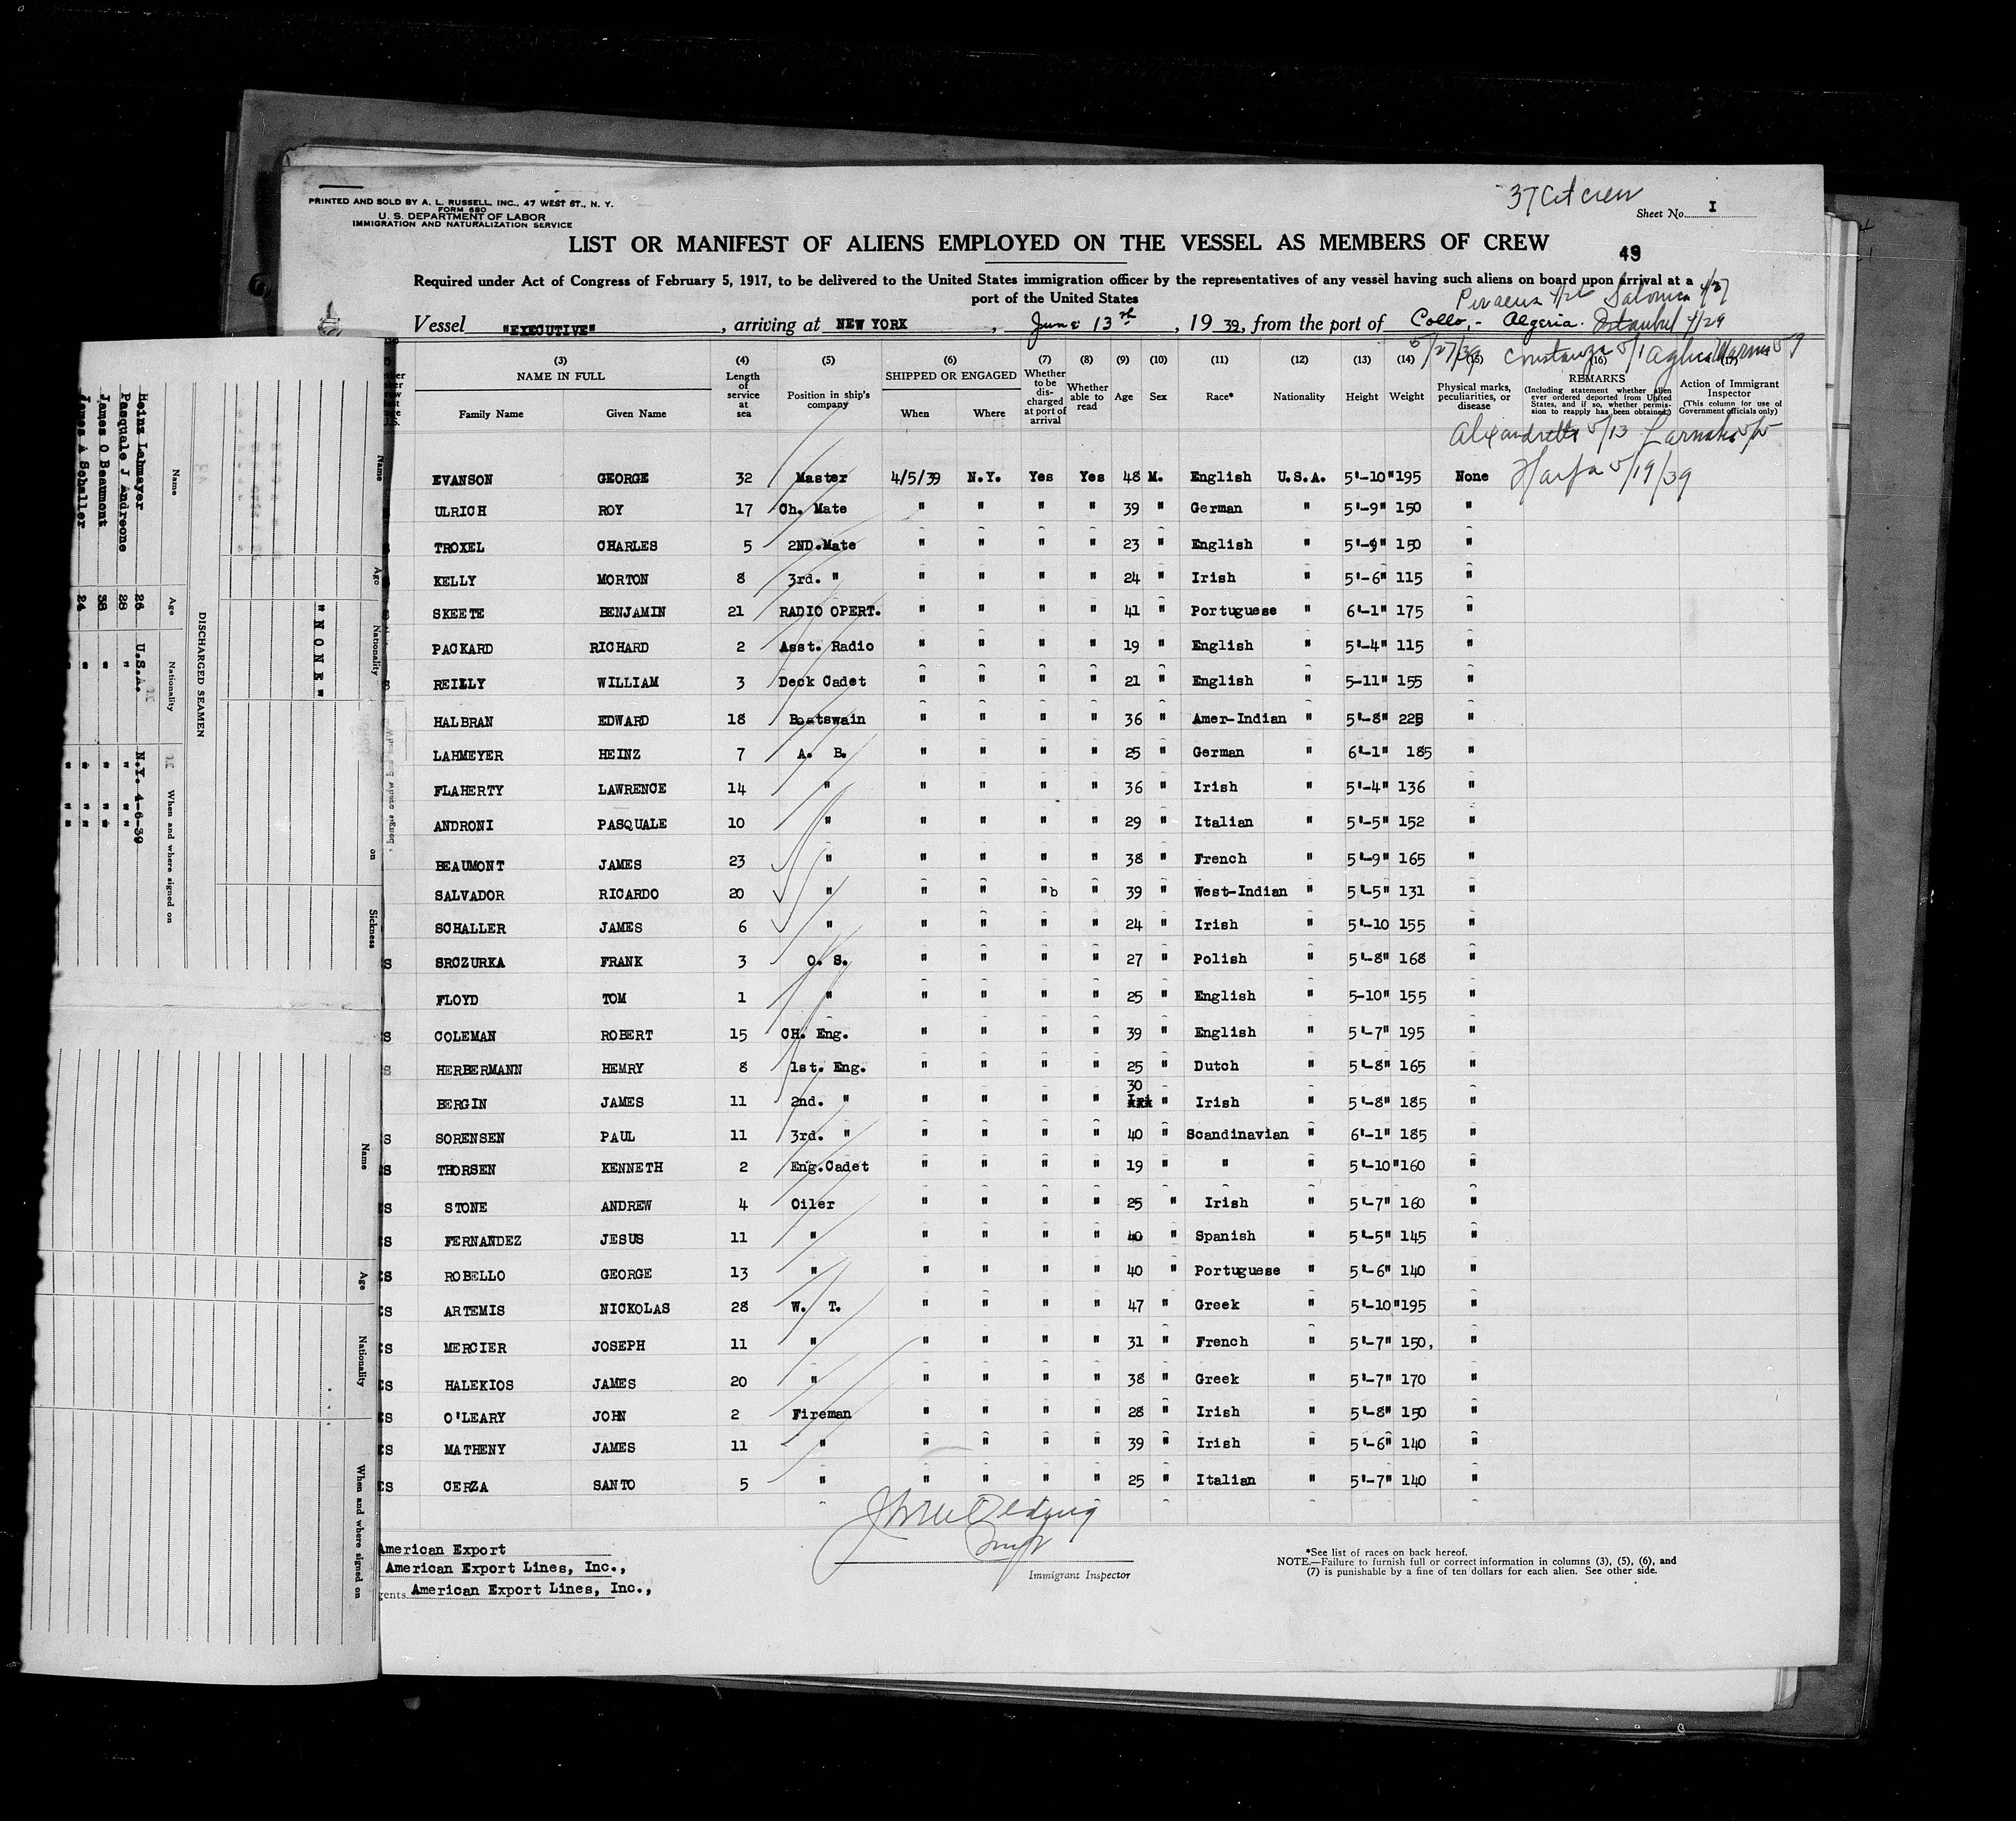 37 Cit crew
PRINTED AND SOLD BY A. L. RUSSELL, INC., 47 WEST ST., N. Y.
FORM 680
U. S. DEPARTMENT OF LABOR
IMMIGRATION AND NATURALIZATION SERVICE
Sheet No. I
LIST OR MANIFEST OF ALIENS EMPLOYED ON THE VESSEL AS MEMBERS OF CREW
49
Required under Act of Congress of February 5, 1917, to be delivered to the United States immigration officer by the representatives of any vessel having such aliens on board upon arrival at a
port of the United States
Piraeus Salonica 4/27
Vessel "EXECUTIVE", arriving at NEW YORK, June 13th, 1939, from the port of Collo,- Algeria. Istanbul 4/29
5/27/39 Constanza 5/1
(3) (4) (5) (6) (7) (8) (9) (10) (11) (12) (13) (14) (15) (16) (17)
NAME IN FULL Length of service at sea Position in ship's company SHIPPED OR ENGAGED Whether to be discharged at port of arrival Whether able to read Age Sex Race* Nationality Height Weight Physical marks, peculiarities, or disease REMARKS (Including statement whether alien ever ordered deported from United States, and if so, whether permission to reapply has been obtained.) Action of Immigrant Inspector (This column for use of Government officials only)
Family Name Given Name When Where
Alexandretta 5/13 Larnaka
Haifa 5/19/39
EVANSON GEORGE 32 Master 4/5/39 N.Y. Yes Yes 48 M. English U.S.A. 5'-10" 195 None
ULRICH ROY 17 Ch. Mate " " " " 39 " German " 5'-9" 150 "
TROXEL CHARLES 5 2ND.Mate " " " " 23 " English " 5'-9" 150 "
KELLY MORTON 8 3rd. " " " " " 24 " Irish " 5'-6" 115 "
SKEETE BENJAMIN 21 RADIO OPERT. " " " " 41 " Portuguese " 6'-1" 175 "
PACKARD RICHARD 2 Asst. Radio " " " " 19 " English " 5'-4" 115 "
REILLY WILLIAM 3 Deck Cadet " " " " 21 " English " 5-11" 155 "
HALBRAN EDWARD 18 Boatswain " " " " 36 " Amer-Indian " 5'-8" 225 "
LAHMEYER HEINZ 7 A. B. " " " " 25 " German " 6'-1" 185 "
FLAHERTY LAWRENCE 14 " " " " " 36 " Irish " 5'-4" 136 "
ANDRONI PASQUALE 10 " " " " " 29 " Italian " 5'-5" 152 "
BEAUMONT JAMES 23 " " " " " 38 " French " 5'-9" 165 "
SALVADOR RICARDO 20 " " " "b " 39 " West-Indian " 5'-5" 131 "
SCHALLER JAMES 6 " " " " " 24 " Irish " 5'-10 155 "
SROZURKA FRANK 3 O. S. " " " " 27 " Polish " 5'-8" 168 "
FLOYD TOM 1 " " " " " 25 " English " 5-10" 155 "
COLEMAN ROBERT 15 CH. Eng. " " " " 39 " English " 5'-7" 195 "
HERBERMANN HEMRY 8 1st. Eng. " " " " 25 " Dutch " 5'-8" 165 "
BERGIN JAMES 11 2nd. " " " " " 30 " Irish " 5'-8" 185 "
SORENSEN PAUL 11 3rd. " " " " " 40 " Scandinavian " 6'-1" 185 "
THORSEN KENNETH 2 Eng.Cadet " " " " 19 " " " 5'-10" 160 "
STONE ANDREW 4 Oiler " " " " 25 " Irish " 5'-7" 160 "
FERNANDEZ JESUS 11 " " " " " 40 " Spanish " 5'-5" 145 "
ROBELLO GEORGE 13 " " " " " 40 " Portuguese " 5'-6" 140 "
ARTEMIS NICKOLAS 28 W. T. " " " " 47 " Greek " 5'-10" 195 "
MERCIER JOSEPH 11 " " " " " 31 " French " 5'-7" 150, "
HALEKIOS JAMES 20 " " " " " 38 " Greek " 5'-7" 170 "
O'LEARY JOHN 2 Fireman " " " " 28 " Irish " 5'-8" 150 "
MATHENY JAMES 11 " " " " " 39 " Irish " 5'-6" 140 "
CERZA SANTO 5 " " " " " 25 " Italian " 5'-7" 140 "
American Export
American Export Lines, Inc.,
gents American Export Lines, Inc.,
Immigrant Inspector
*See list of races on back hereof.
NOTE.—Failure to furnish full or correct information in columns (3), (5), (6), and
(7) is punishable by a fine of ten dollars for each alien. See other side.
Name Age Nationality on Sickness
"NONE"
DISCHARGED SEAMEN
Name Age Nationality When and where signed on
Heinz Lahmayer 26 U.S.A. N.Y. 4-6-39
Pasquale J Andreone 28 " " "
James O Beaumont 38 " " "
James A Schaller 24 " " "
Name Age Nationality When and where signed on